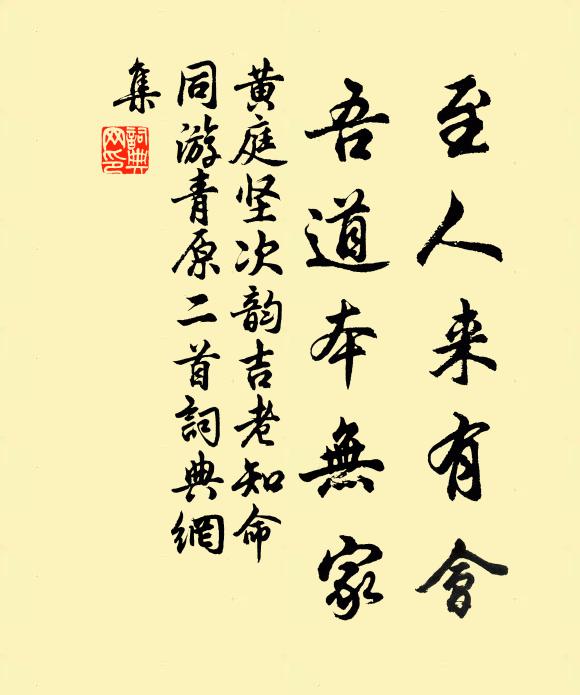 至人来有會
吾道本無家
黄庭坚次韵吉老知命
同游青原二首詞典網
集
詞典
网印